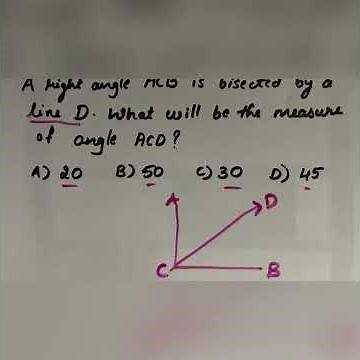 A right angle ACB is bisected by a
line D. What will be the measure
of angle ACD?
A) 20 B) 50 C) 30 D) 45
A
D
C
B